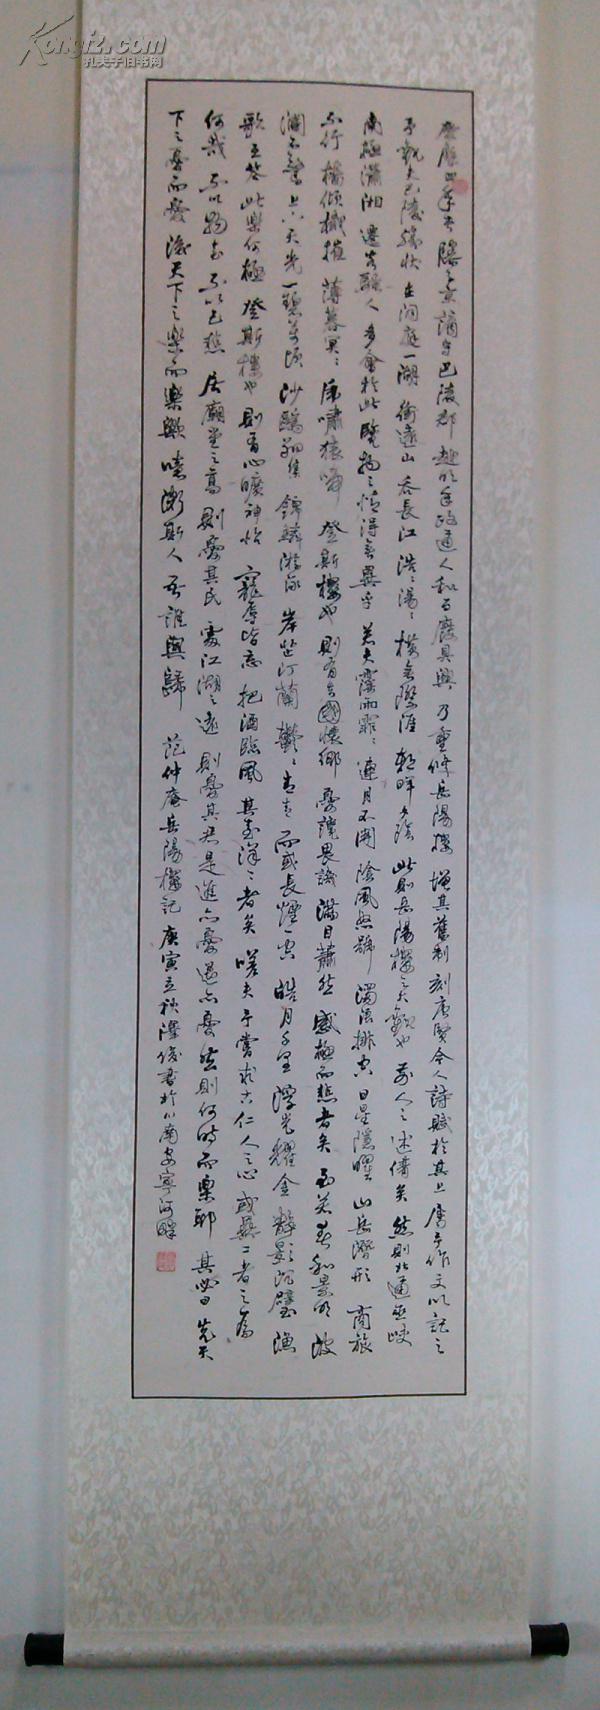 Kongfz.com
孔夫子旧书网
慶曆四年春滕子京謫守巴陵郡越明年政通人和百廢具興乃重修岳陽樓增其舊制刻唐賢今人詩賦於其上屬予作文以記之
予觀夫巴陵勝狀在洞庭一湖銜遠山吞長江浩〻湯〻橫無際涯朝暉夕陰此則岳陽樓之大觀也前人之述備矣然則北通巫峽
南極瀟湘遷客騷人多會於此覽物之情得無異乎若夫霪雨霏〻連月不開陰風怒號濁浪排空日星隱曜山岳潛形商旅
不行檣傾檝摧薄暮冥〻虎嘯猿啼登斯樓也則有去國懷鄉憂讒畏譏滿目蕭然感極而悲者矣至若春和景明波
瀾不驚上下天光一碧萬頃沙鷗翔集錦鱗游泳岸芷汀蘭鬱〻青青而或長煙一空皓月千里浮光耀金靜影沉璧漁
歌互答此樂何極登斯樓也則有心曠神怡寵辱皆忘把酒臨風其喜洋〻者矣嗟夫予嘗求古仁人之心或異二者之為
何哉不以物喜不以己悲居廟堂之高則憂其民處江湖之遠則憂其君是進亦憂退亦憂然則何時而樂耶其必曰先天
下之憂而憂後天下之樂而樂歟噫微斯人吾誰與歸 范仲庵岳陽樓記 庚寅立秋澤俊書於川南安寧河畔